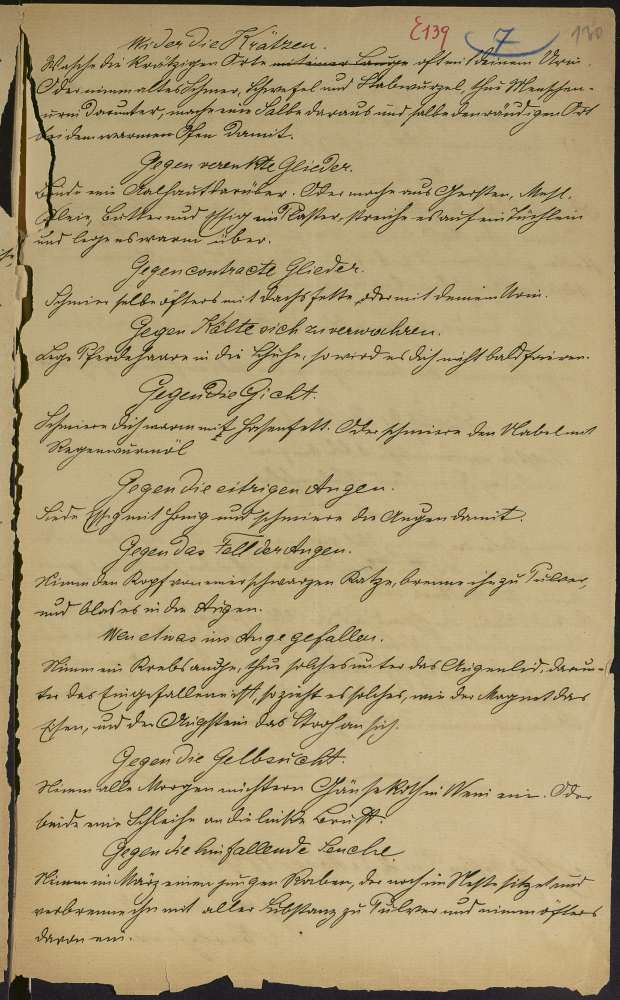 E139 7 130
Wider die Krätzen.
Wasche die krätzigen Orte mit einer Lauge oft mit deinem Urin.
Oder nimm altes Schmer, Schwefel und Stabwurzel, thue Menschen-
urin darunter, mache eine Salbe daraus und salbe den räudigen Ort
bei dem warmen Ofen damit.
Gegen verenkte Glieder.
Binde eine Aalhaut darüber. Oder mache aus Gersten, Mehl,
Kleie, Butter und Essig ein Plaster, streiche es auf ein Tüchlein
und lege es warm über.
Gegen contracte Glieder.
Schmier selbe öfters mit Dachsfette oder mit deinem Urin.
Gegen Kälte sich zu verwahren.
Lege Pferdehaare in die Schuhe, so wird es dich nicht bald frieren.
Gegen die Gicht.
Schmiere dich warm mit Hasenfett. Oder schmiere den Nabel mit
Regenwurmöl
Gegen die eitrigen Augen.
Siede Essig mit Honig und schmiere die Augen damit.
Gegen das Fell der Augen.
Nimm den Kopf von einer schwarzen Katze, brenne ihn zu Pulver,
und blas es in die Augen.
Wen etwas ins Auge gefallen.
Nimm ein Krebsauge, thue solches unter das Augenlid, darun-
ter das Eingefallene ist, so zieht es solches, wie der Magnet das
Eisen, und der Augstein das Stroh an sich.
Gegen die Gelbsucht.
Nimm alle Morgen nüchtern Gänsekoth in Wein ein. Oder
binde eine Schleihe an die linke Brust.
Gegen die hinfallende Seuche
Nimm im März einen jungen Raben, der noch im Neste sitzet und
verbrenne ihn mit aller Substanz zu Pulver und nimm öfters
davon ein.